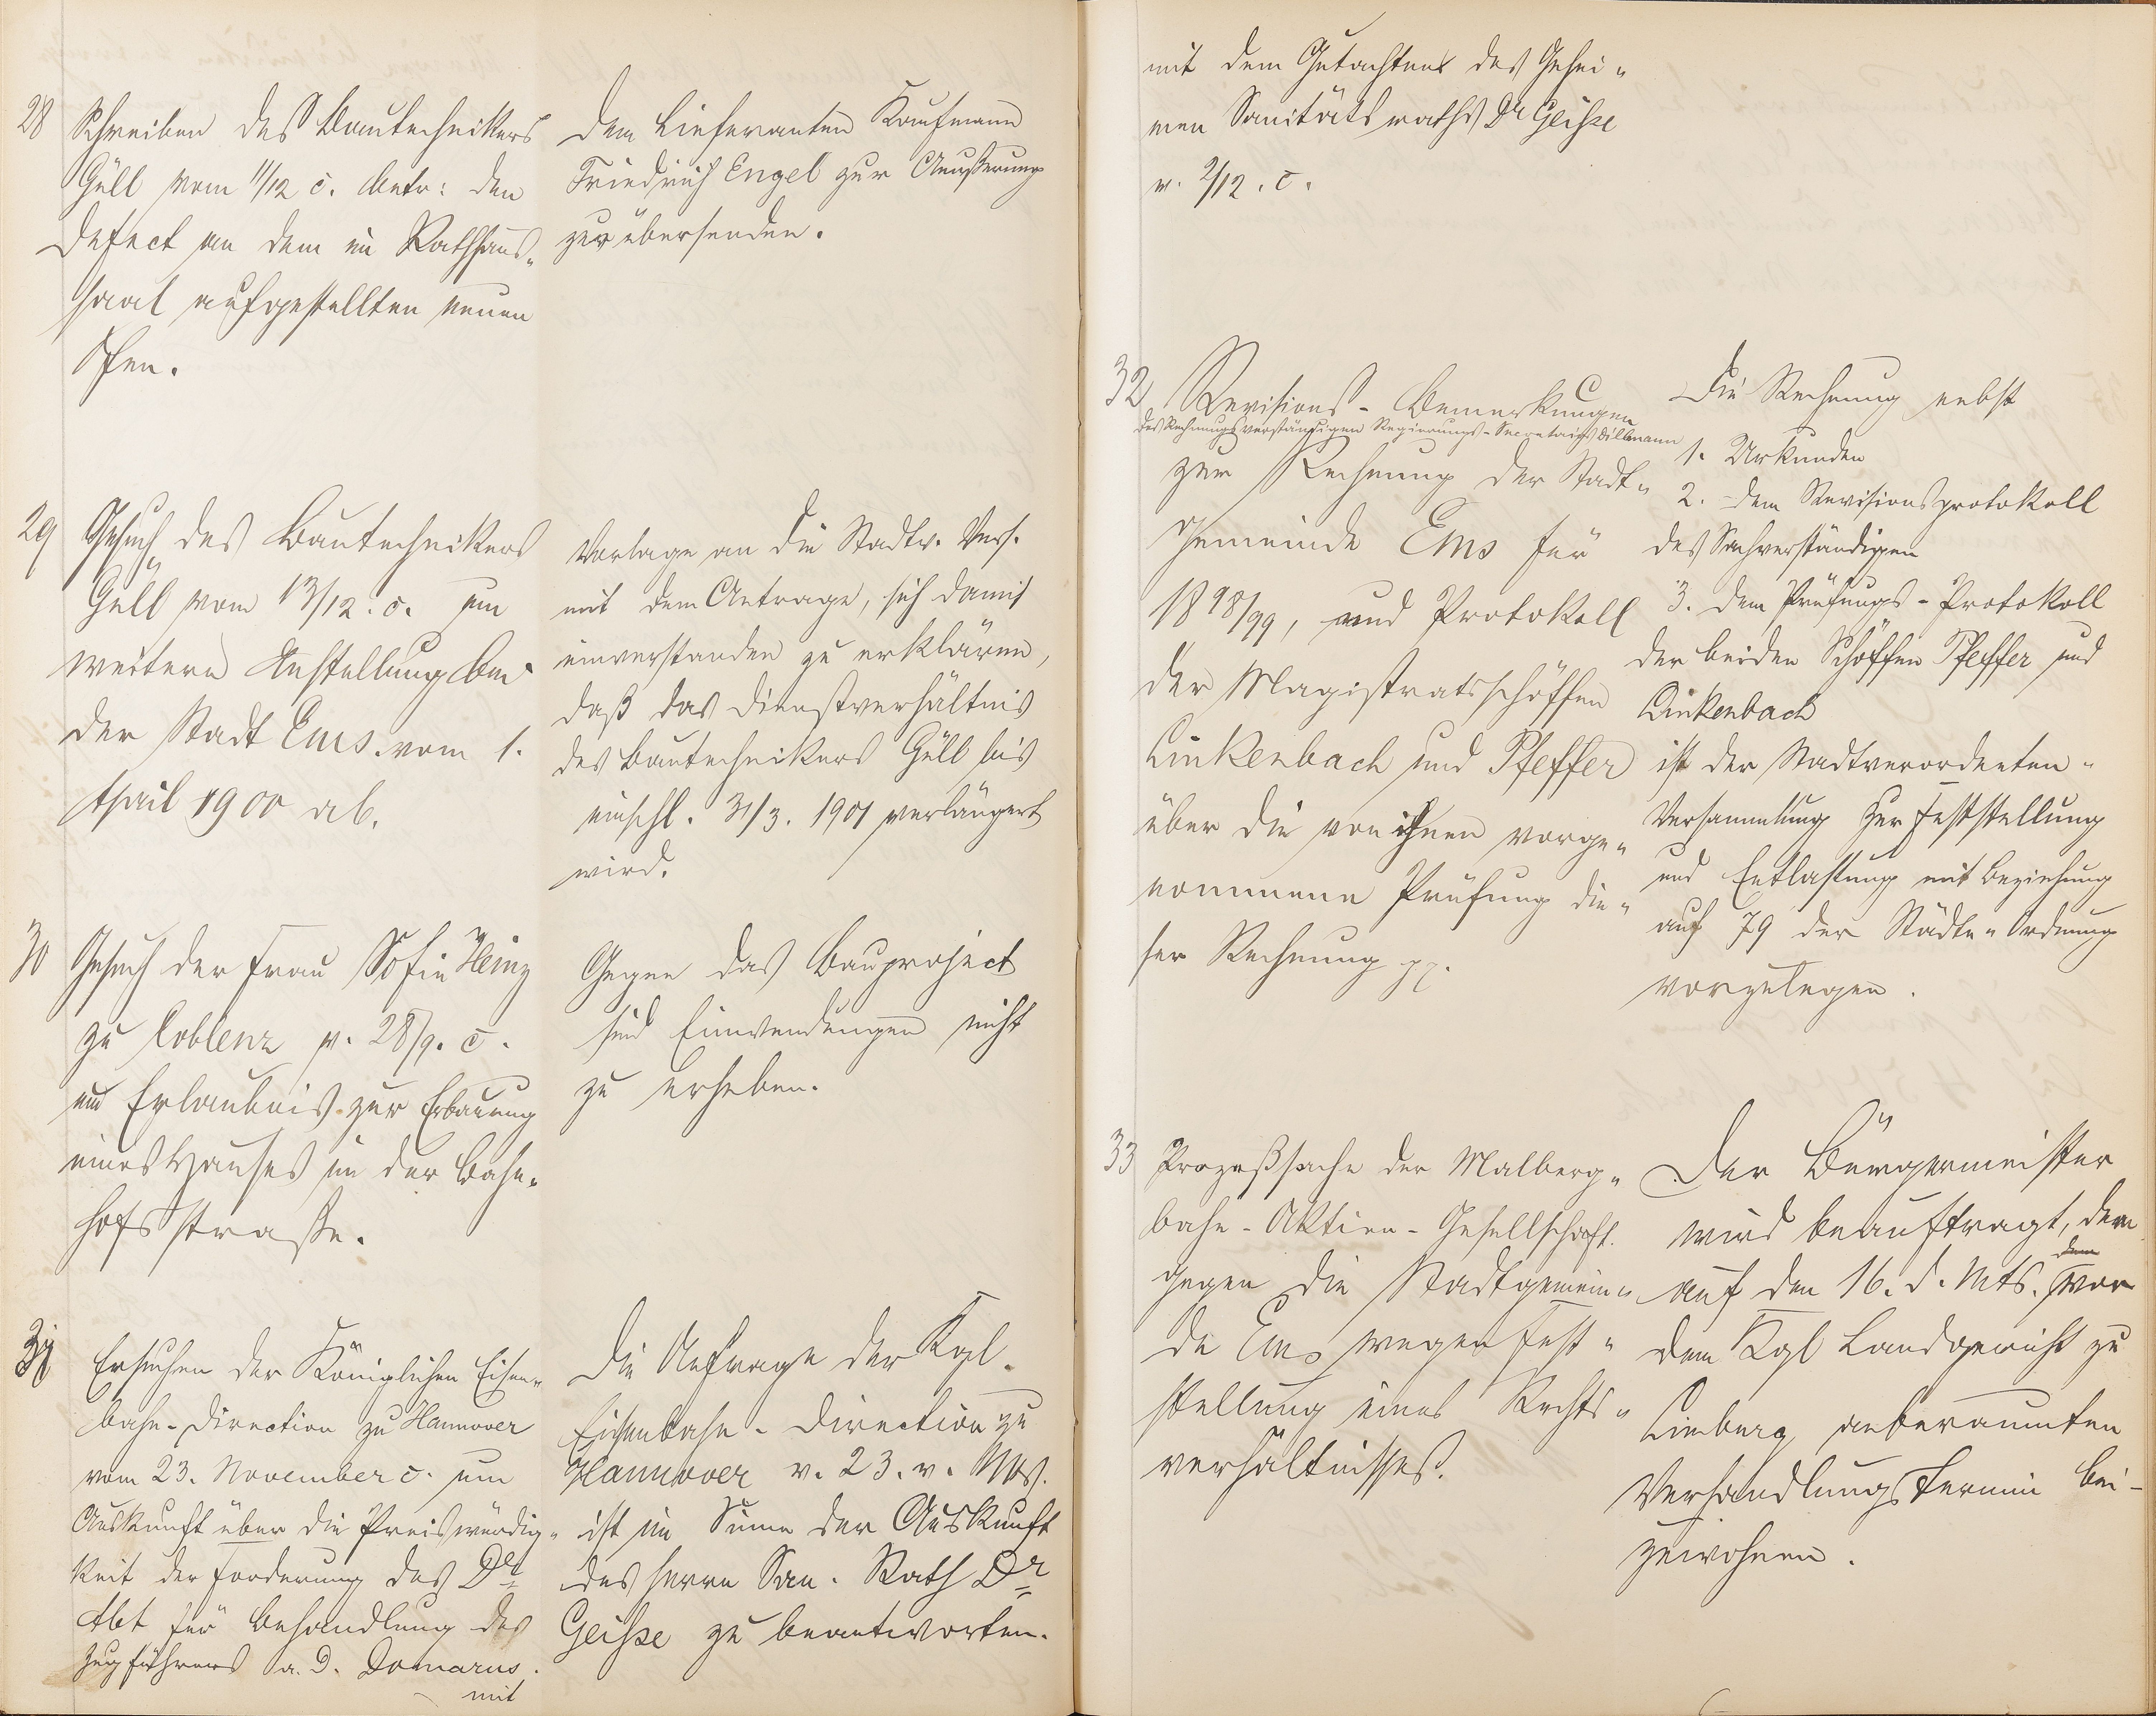 28
Schreiben des Bautechnikers
Güll vom 11/12 c. betr: den
Defect an dem im Rathhaus„
saal aufgestellten neuen
Ofen.
Dem Lieferanten Kaufmann
Friedrich Engel zur Aeußerung
zu übersenden.
29
Gesuch des Bautechnikers
Güll vom 13/12. c. um
weitere Anstellung bei
der Stadt Ems vom 1.
April 1900 ab.
Vorlage an die Stadtv. Vers.
mit dem Antrage, sich damit
einverstanden zu erklären,
daß das Dienstverhältnis
des Bautechnikers Güll bis
einschl. 31/3. 1901 verlängert
wird.
30
Gesuch der Frau Sofie Heinz
zu Coblenz v. 28/9. c.
um Erlaubnis zur Erbauung
eines Hauses in der Bahn„
hofsstraße.
Gegen das Bauproject
sind Einwendungen nicht
zu erheben.
31
Ersuchen der Königlichen Eisen„
bahn-Direction zu Hannover
vom 23. November c. um
Auskunft über die Preiswürdig„
keit der Forderung des Dr
Abt für Behandlung des
Zugführers a. D. Domarus.
mit
Die Anfrage der Kgl.
Eisenbahn-Direction zu
Hannover v. 23. v. Mts.
ist im Sinne der Auskunft
des Herrn San. Rath Dr
Geisse zu beantworten.
mit dem Gutachten des Gehei„
men Sanitätsraths Dr Geisse
v. 2/12. c.
32
Revisions-Bemerkungen
des Rechnungsverständigen Regierungs-Secretairs Dillmann
zur Rechnung der Stadt„
gemeinde Ems für
1898/99, und Protokoll
der Magistratsschöffen
Linkenbach und Pfeffer
über die von ihnen vorge„
nommene Prüfung die„
ser Rechnung pp.
Die Rechnung nebst
1. Urkunden
2. dem Revisionsprotokoll
des Sachverständigen
3. dem Prüfungs-Protokoll
der beiden Schöffen Pfeffer und
Linkenbach
ist der Stadtverordneten„
Versammlung zur Feststellung
und Entlastung mit Beziehung
auf 79 der Städte„Ordnung
vorzulegen.
33
Prozeßsache der Malberg„
bahn-Aktien-Gesellschaft.
gegen die Stadtgemein„
de Ems wegen Fest„
stellung eines Rechts„
verhältnisses.
Der Bürgermeister
wird beauftragt, dem
auf den 16. d. Mts. vor
dem Kgl Landgericht zu
Limburg anberaumten
Verhandlungstermin bei-
zuwohnen.